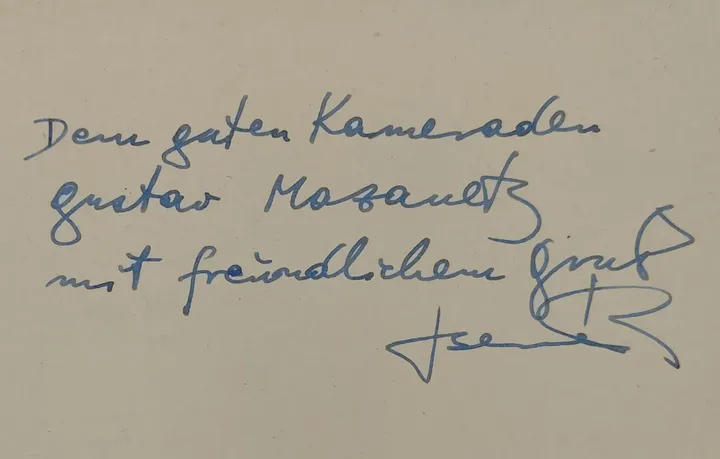 Dem guten Kameraden
gustav Mosanetz
mit freundlichem gruß